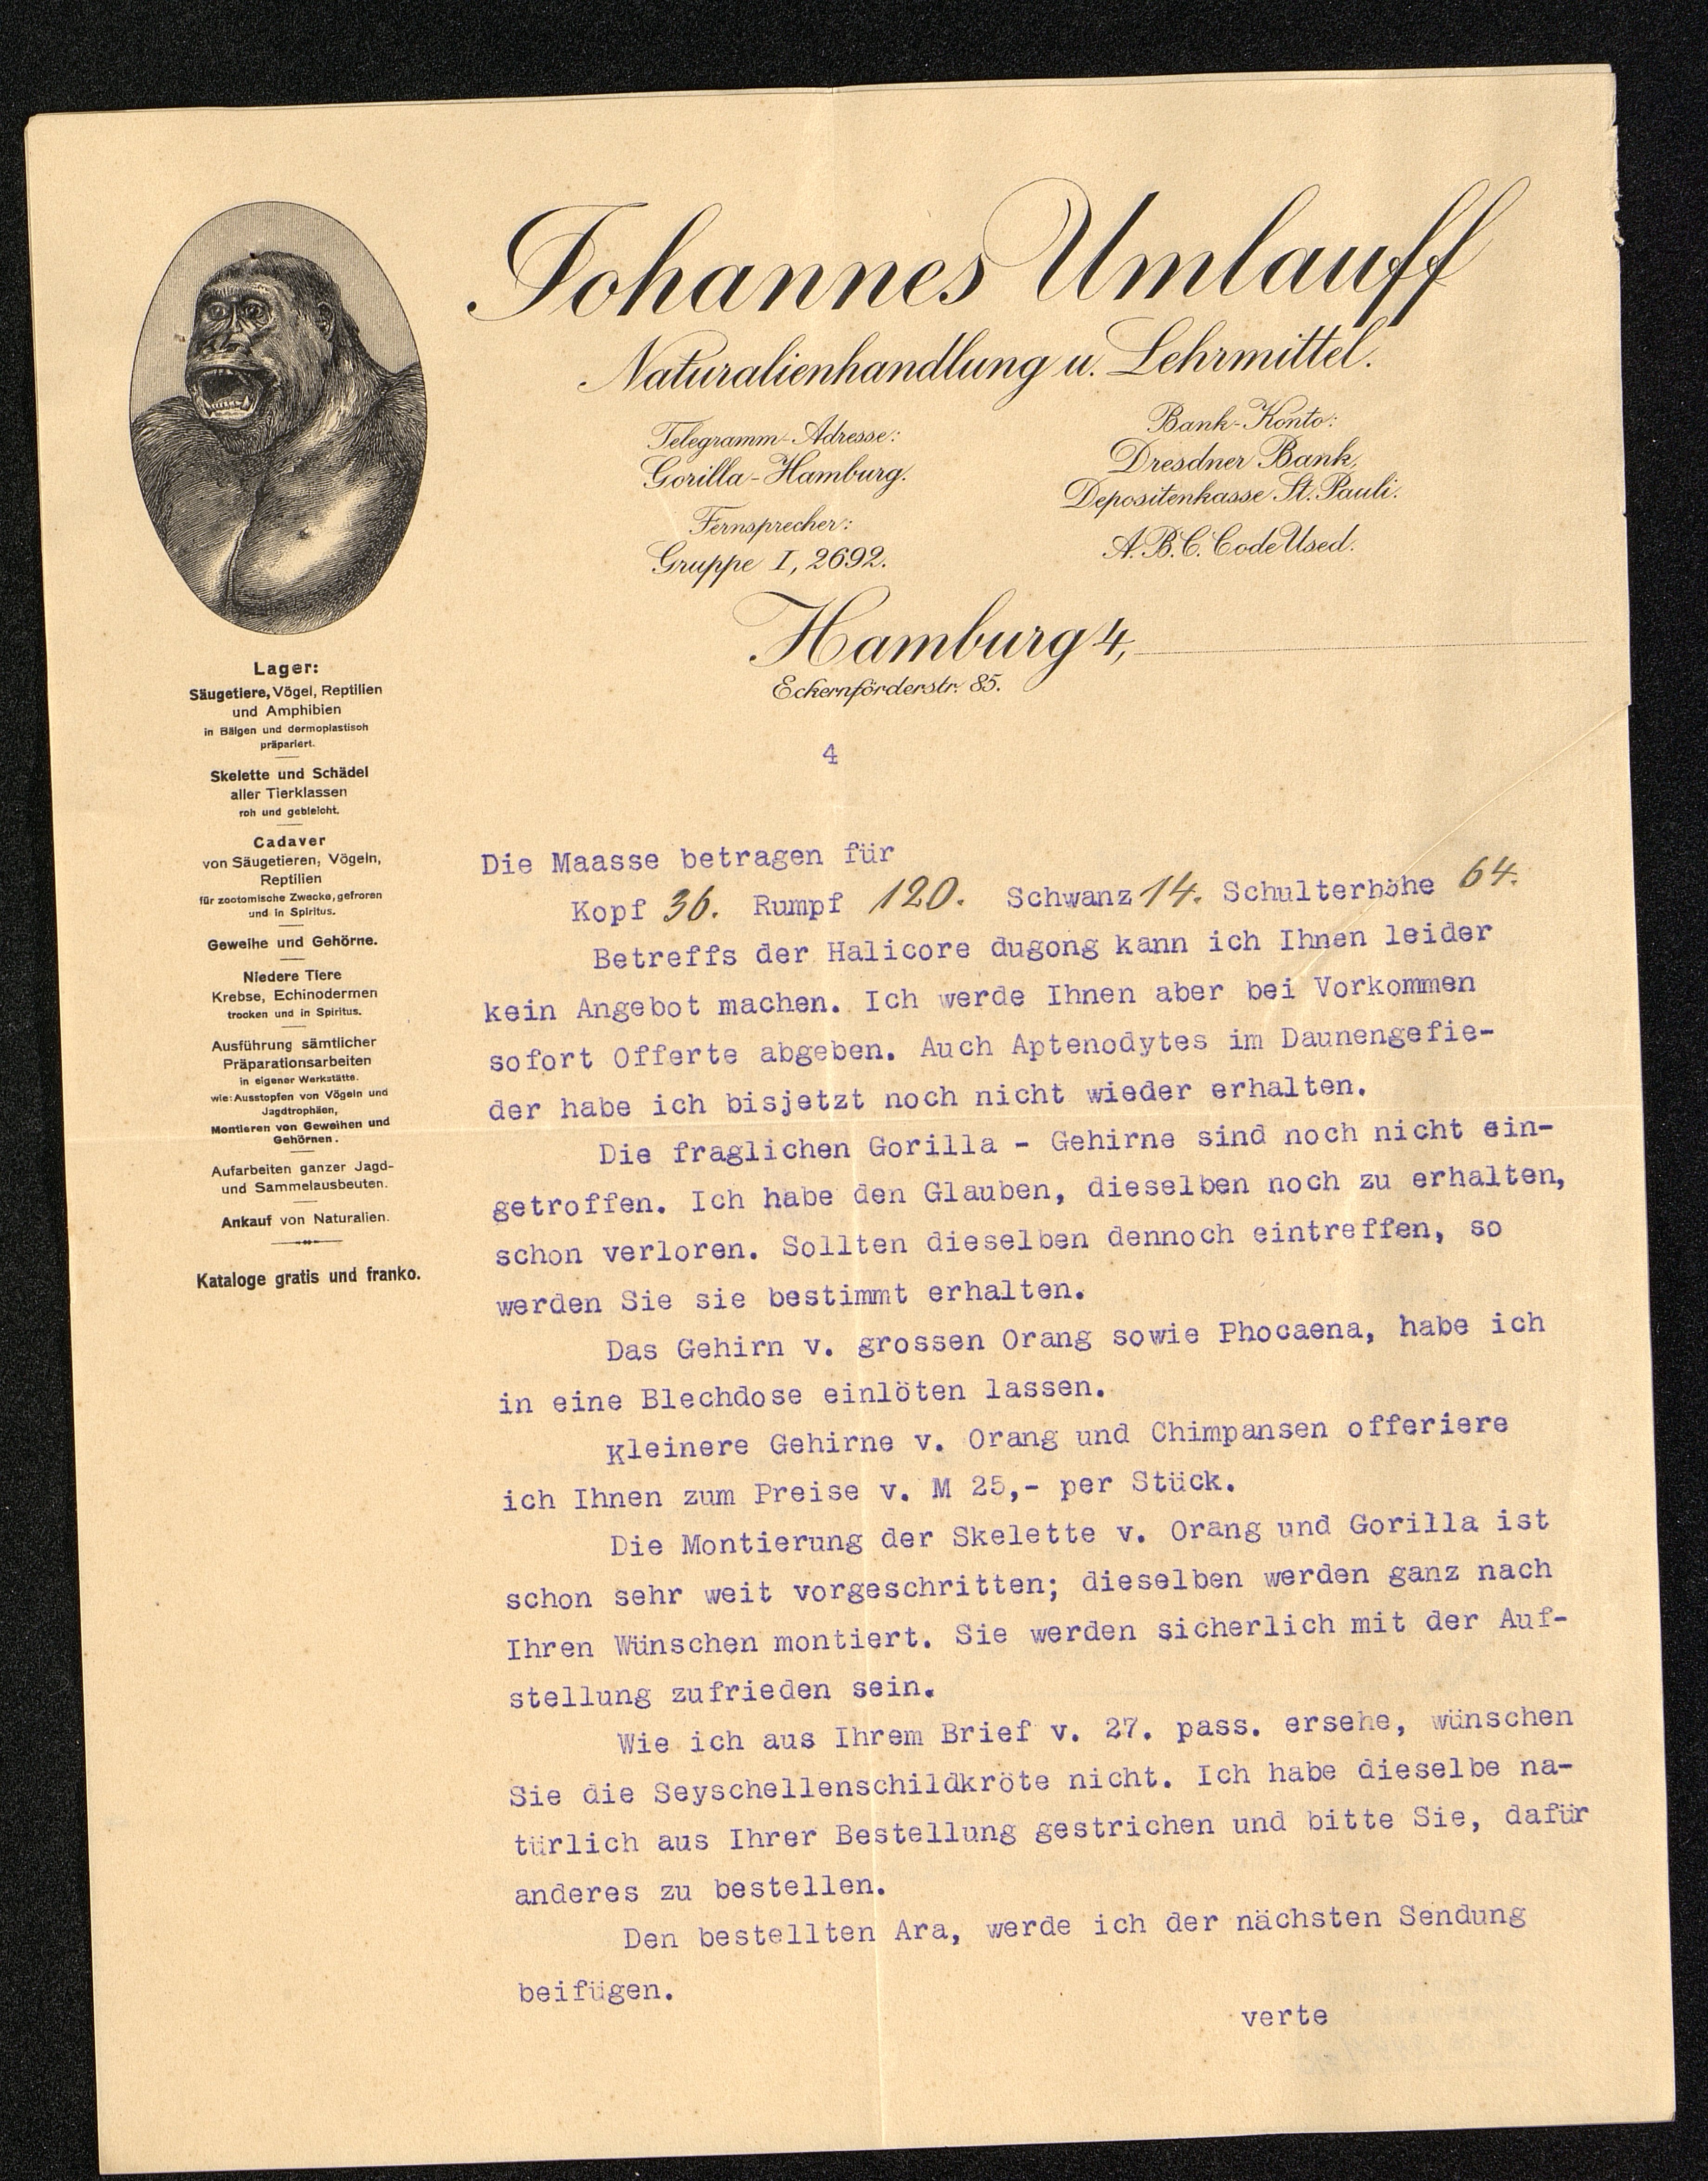 Johannes Umlauff
Naturalienhandlung u. Lehrmittel.
Telegramm-Adresse:
Gorilla-Hamburg.
Fernsprecher:
Gruppe I, 2692.
Bank-Konto:
Dresdner Bank,
Depositenkasse St. Pauli.
A.B.C. Code Used.
Hamburg 4,
Eckernförderstr. 85.
Lager:
Säugetiere, Vögel, Reptilien
und Amphibien
in Bälgen und dermoplastisch
präpariert.
Skelette und Schädel
aller Tierklassen
roh und gebleicht.
Cadaver
von Säugetieren, Vögeln,
Reptilien
für zootomische Zwecke, gefroren
und in Spiritus.
Geweihe und Gehörne.
Niedere Tiere
Krebse, Echinodermen
trocken und in Spiritus.
Ausführung sämtlicher
Präparationsarbeiten
in eigener Werkstätte.
wie: Ausstopfen von Vögeln und
Jagdtrophäen,
Montieren von Geweihen und
Gehörnen.
Aufarbeiten ganzer Jagd-
und Sammelausbeuten.
Ankauf von Naturalien.
Kataloge gratis und franko.
4
Die Maasse betragen für
Kopf 36. Rumpf 120. Schwanz 14. Schulterhöhe 64.
Betreffs der Halicore dugong kann ich Ihnen leider
kein Angebot machen. Ich werde Ihnen aber bei Vorkommen
sofort Offerte abgeben. Auch Aptenodytes im Daunengefie-
der habe ich bisjetzt noch nicht wieder erhalten.
Die fraglichen Gorilla - Gehirne sind noch nicht ein-
getroffen. Ich habe den Glauben, dieselben noch zu erhalten,
schon verloren. Sollten dieselben dennoch eintreffen, so
werden Sie sie bestimmt erhalten.
Das Gehirn v. grossen Orang sowie Phocaena, habe ich
in eine Blechdose einlöten lassen.
Kleinere Gehirne v. Orang und Chimpansen offeriere
ich Ihnen zum Preise v. M 25,- per Stück.
Die Montierung der Skelette v. Orang und Gorilla ist
schon sehr weit vorgeschritten; dieselben werden ganz nach
Ihren Wünschen montiert. Sie werden sicherlich mit der Auf-
stellung zufrieden sein.
Wie ich aus Ihrem Brief v. 27. pass. ersehe, wünschen
Sie die Seyschellenschildkröte nicht. Ich habe dieselbe na-
türlich aus Ihrer Bestellung gestrichen und bitte Sie, dafür
anderes zu bestellen.
Den bestellten Ara, werde ich der nächsten Sendung
beifügen.
verte